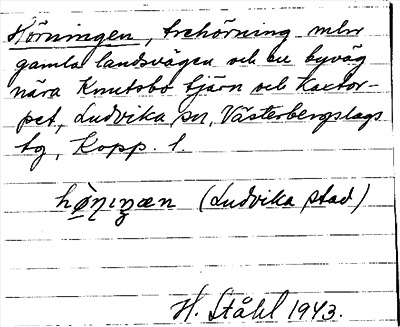 Hörningen, trehörning mellan
gamla landsvägen och en byväg
nära Knutsbo tjärn och Kaxtor-
pet, Ludvika sn, Västerbergslags
tg, Kopp. l.
hø̀ṇiŋæn (Ludvika stad)
H. Ståhl 1943.